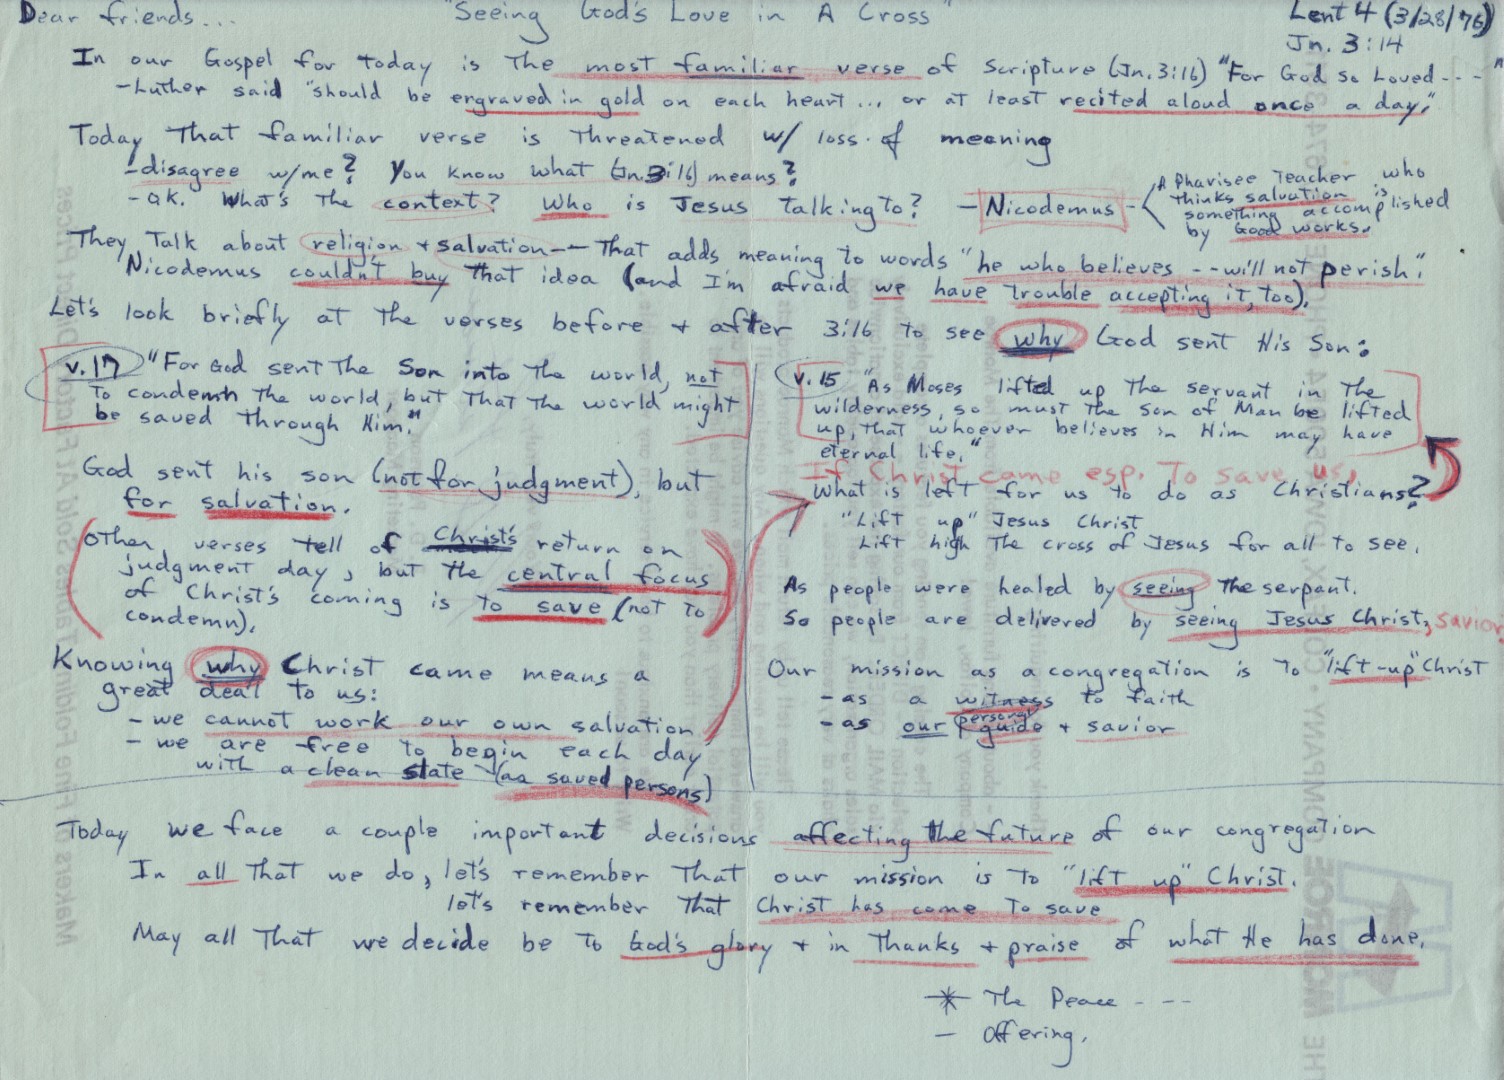 Dear friends... "Seeing God's Love in A Cross" Lent 4 (3/28/76)
Jn. 3:14
In our Gospel for today is the most familiar verse of Scripture (Jn. 3:16) "For God so Loved --- "
-Luther said "should be engraved in gold on each heart... or at least recited aloud once a day."
Today that familiar verse is threatened w/ loss of meaning
-disagree w/me? You know what (Jn. 3:16) means?
-o.k. What's the context? Who is Jesus talking to? - Nicodemus -
A Pharisee Teacher who
thinks salvation is
something accomplished
by Good works.
They Talk about religion + salvation -- that adds meaning to words "he who believes -- will not perish".
Nicodemus couldn't buy that idea (and I'm afraid we have trouble accepting it, too).
Let's look briefly at the verses before + after 3:16 to see why God sent His Son:
v. 17 "For God sent the Son into the world, not
to condemn the world, but that the world might
be saved through Him."
God sent his son (not for judgment), but
for salvation.
(Other verses tell of Christ's return on
judgment day, but the central focus
of Christ's coming is to save (not to
condemn).
Knowing why Christ came means a
great deal to us:
- we cannot work our own salvation
- we are free to begin each day
with a clean slate (as saved persons)
v. 15 "As Moses lifted up the servant in the
wilderness, so must the Son of Man be lifted
up, that whoever believes in Him may have
eternal life."
If Christ came esp. to save us,
What is left for us to do as Christians?
"Lift up" Jesus Christ
Lift high the cross of Jesus for all to see.
As people were healed by seeing the serpant.
So people are delivered by seeing Jesus Christ, savior
Our mission as a congregation is to "lift-up" Christ
- as a witness to faith
- as our personal guide + savior
Today we face a couple important decisions affecting the future of our congregation
In all that we do, let's remember that our mission is to "lift up" Christ.
let's remember that Christ has come to save
May all that we decide be to God's glory + in thanks + praise of what He has done.
* The Peace ----
- Offering.